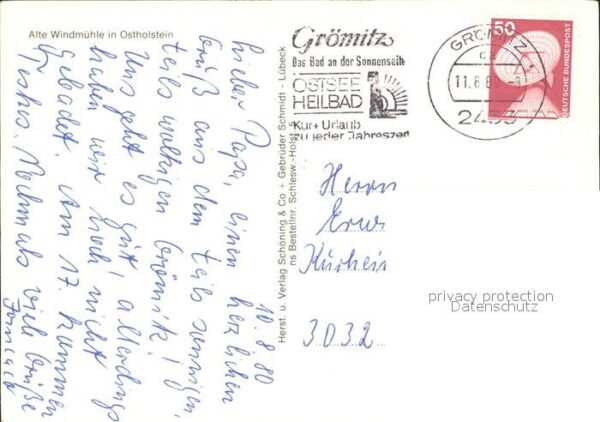 Alte Windmühle in Ostholstein
10.8.80
Lieber Papa, einen herzlichen
Gruß aus dem teils sonnigen,
teils wolkigen Grömitz!
Uns geht es gut, allerdings
haben wir noch nicht
gebadet. Am 17. kommen
Nochmals viel Grüße
Herst. u. Verlag Schöning & Co + Gebrüder Schmidt - Lübeck
Bestellnr. Schlesw.-Hols
Grömitz
Das Bad an der Sonnenseite
OSTSEE
HEILBAD
Kur + Urlaub
zu jeder Jahreszeit
GRÖMITZ
11.8.80
2433
50
DEUTSCHE BUNDESPOST
Herrn
Erw
3032
privacy protection
Datenschutz